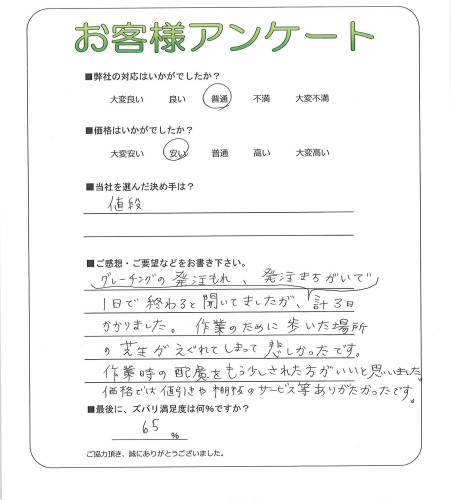 お客様アンケート
■弊社の対応はいかがでしたか？
大変良い 良い 普通 不満 大変不満
■価格はいかがでしたか？
大変安い 安い 普通 高い 大変高い
■当社を選んだ決め手は？
値段
■ご感想・ご要望などをお書き下さい。
グレーチングの発注もれ、発注まちがいで
1日で終わると聞いてましたが、計3日
かかりました。作業のために歩いた場所
の芝生がえぐれてしまって悲しかったです。
作業時の配慮をもう少しされた方がいいと思いました。
価格では値引きや棚板のサービス等ありがたかったです。
■最後に、ズバリ満足度は何％ですか？
65 %
ご協力頂き、誠にありがとうございました。